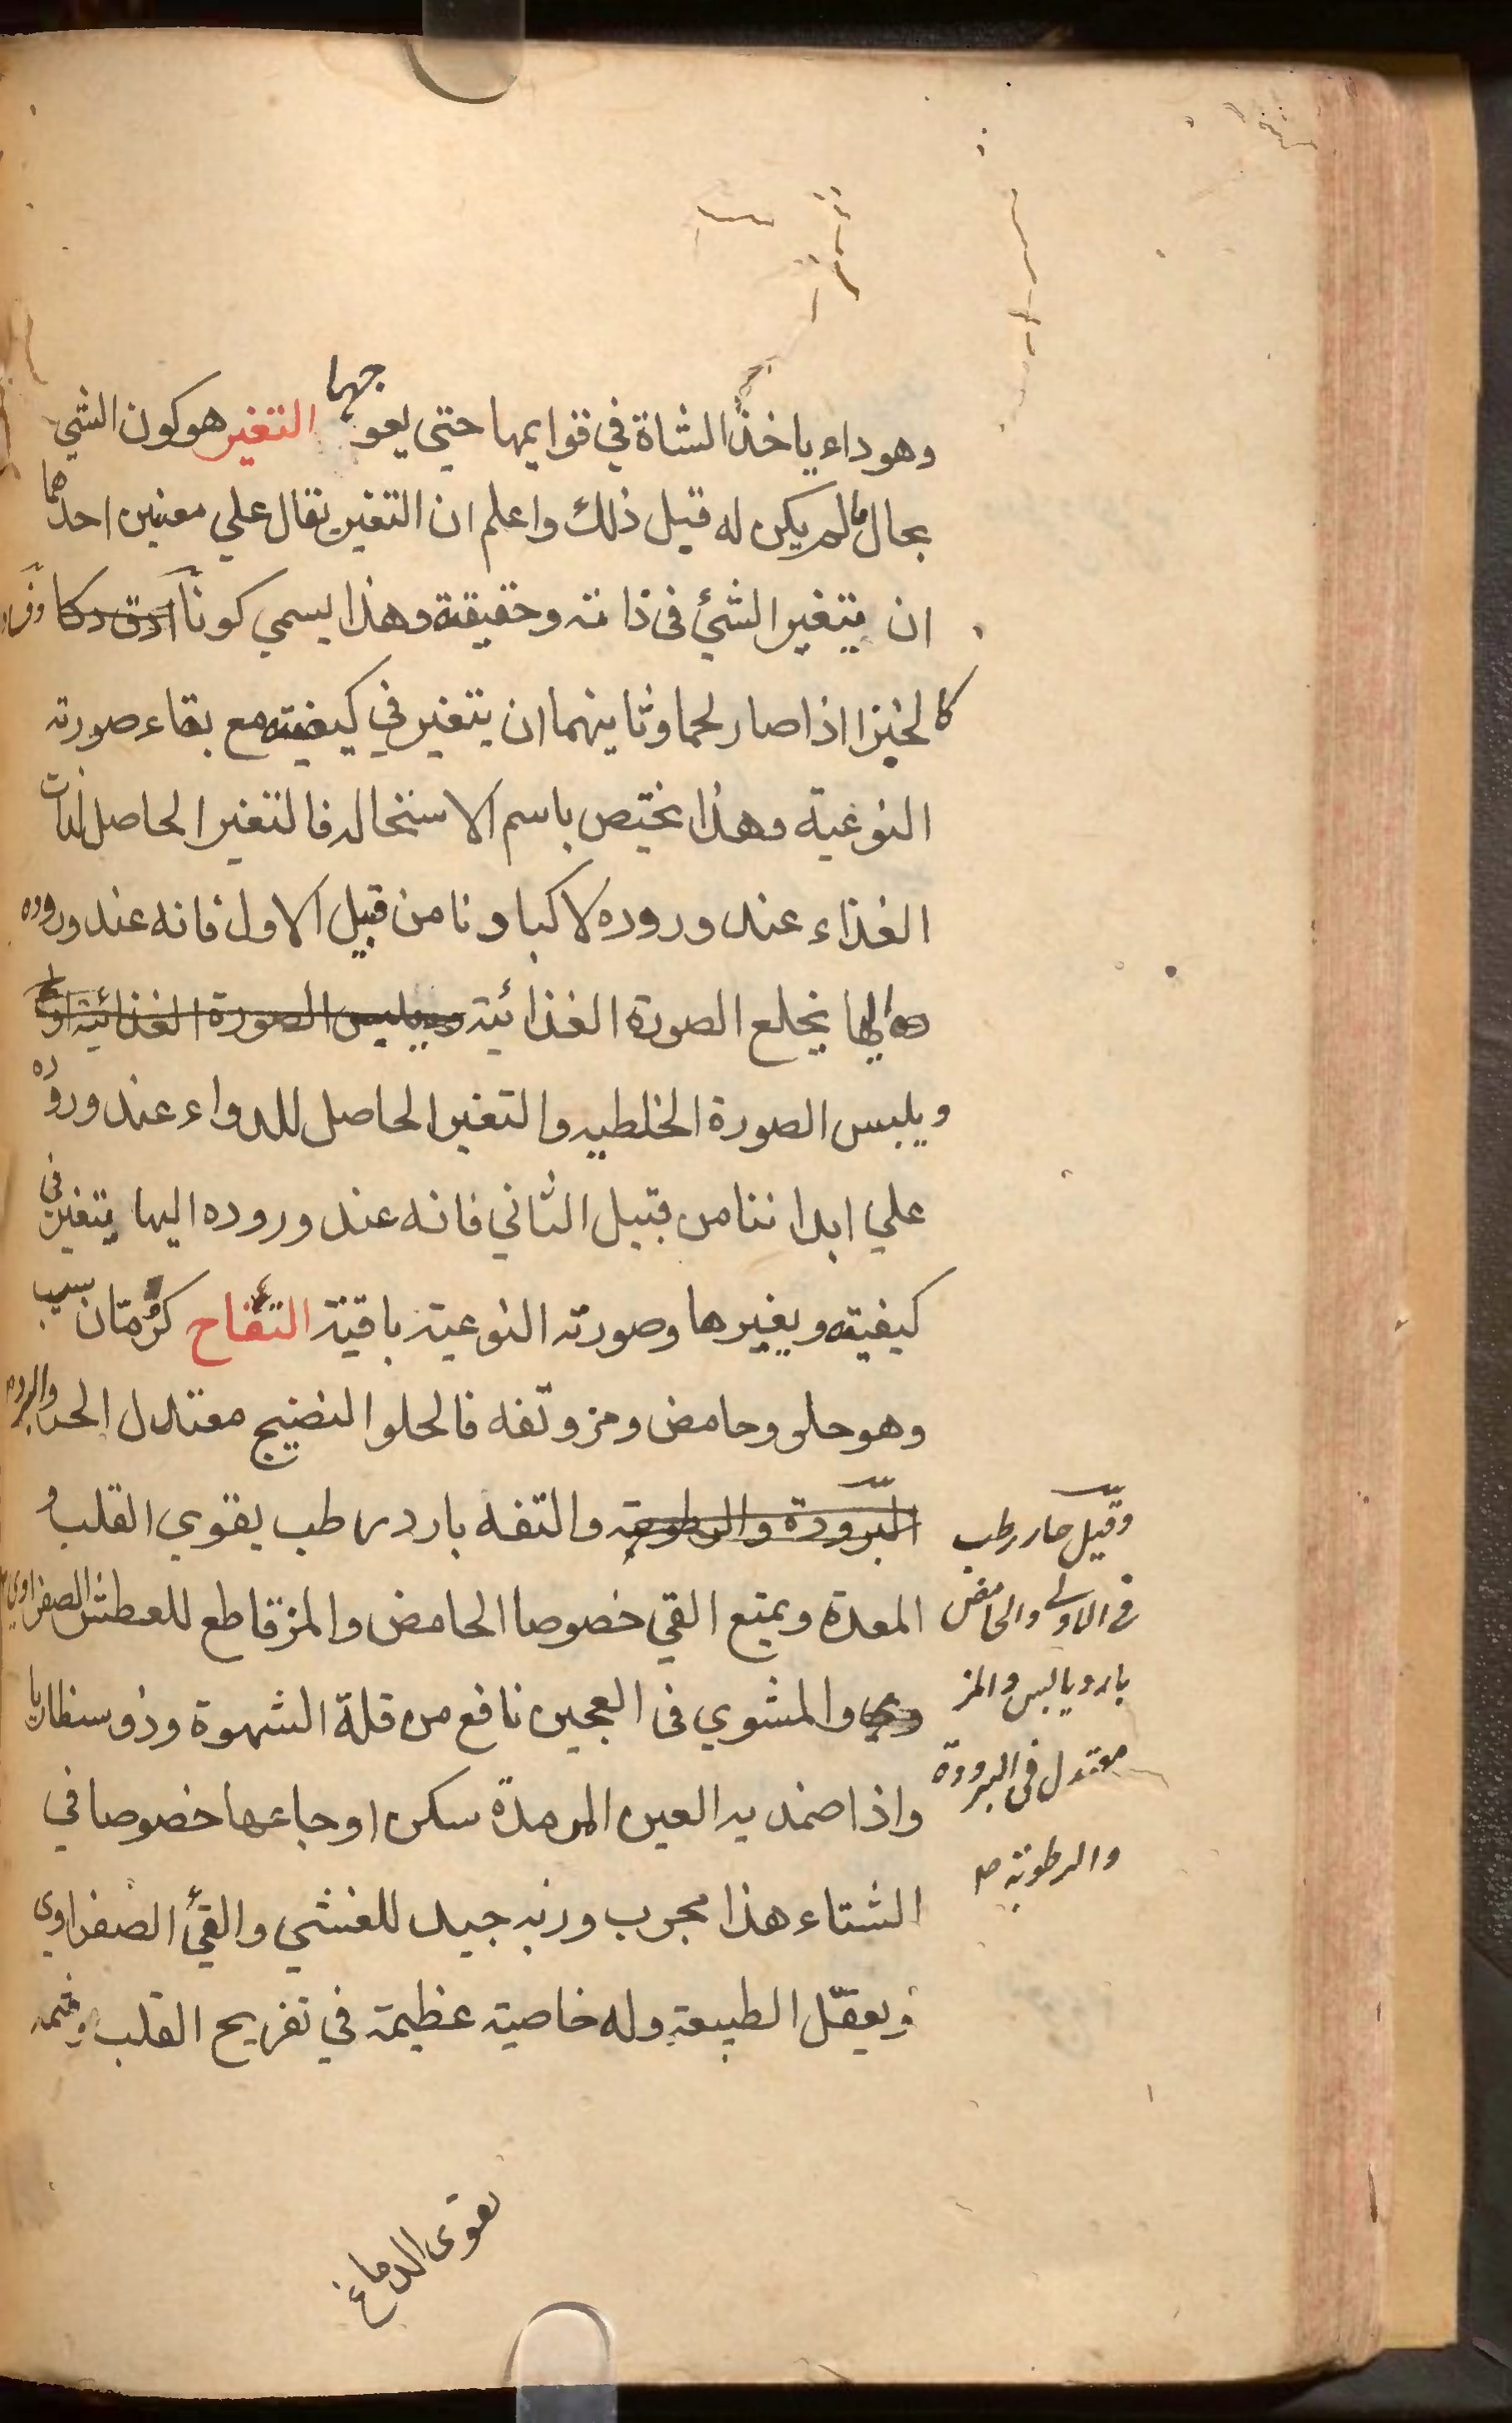 وهو داء ياخذ الشاة في قوايمها حتي يعوجها التغير هو كون الشي
بحال ما لم يكن له قبل ذلك واعلم ان التغير يقال علي معنيين احدهما
ان يتغير الشئ في ذاته وحقيقته وهذا يسمي كونا
كالخبز اذا صار لحما وثانيهما ان يتغير في كيفيته مع بقاء صورته
النوعية وهذا يختص باسم الاستحاله فالتغير الحاصل لذات
الغذاء عند وروده لاكبادنا من قبيل الاول فانه عند وروده
اليها يخلع الصورة الغذائية ويلبس الصورة الغذائية
ويلبس الصورة الخلطيه والتغير الحاصل للدواء عند وروده
علي ابداننا من قبيل الثاني فانه عند وروده اليها يتغير في
كيفيته ويغيرها وصورته النوعية باقية التفاح كرمان سيب
وهو حلو وحامض ومز وتفه فالحلو النضيج معتدل الحر والبرد
البرودة والرطوبة والتفه بارد رطب يقوي القلب و
المعدة ويمنع القي خصوصا الحامض والمز قاطع للعطش الصفراوي
والمشوي في العجين نافع من قلة الشهوة وذوسنطاريا
واذا ضمد به العين الرمدة سكن اوجاعها خصوصا في
الشتاء هذا مجرب وربه جيد للغشي والقئ الصفراوي
ويعقل الطبيعة وله خاصية عظيمة في تفريح القلب وشمه
يقوى الدماغ
وقيل حار رطب
في الاولى والحامض
بارد يابس والمز
معتدل في البرودة
والرطوبة صح